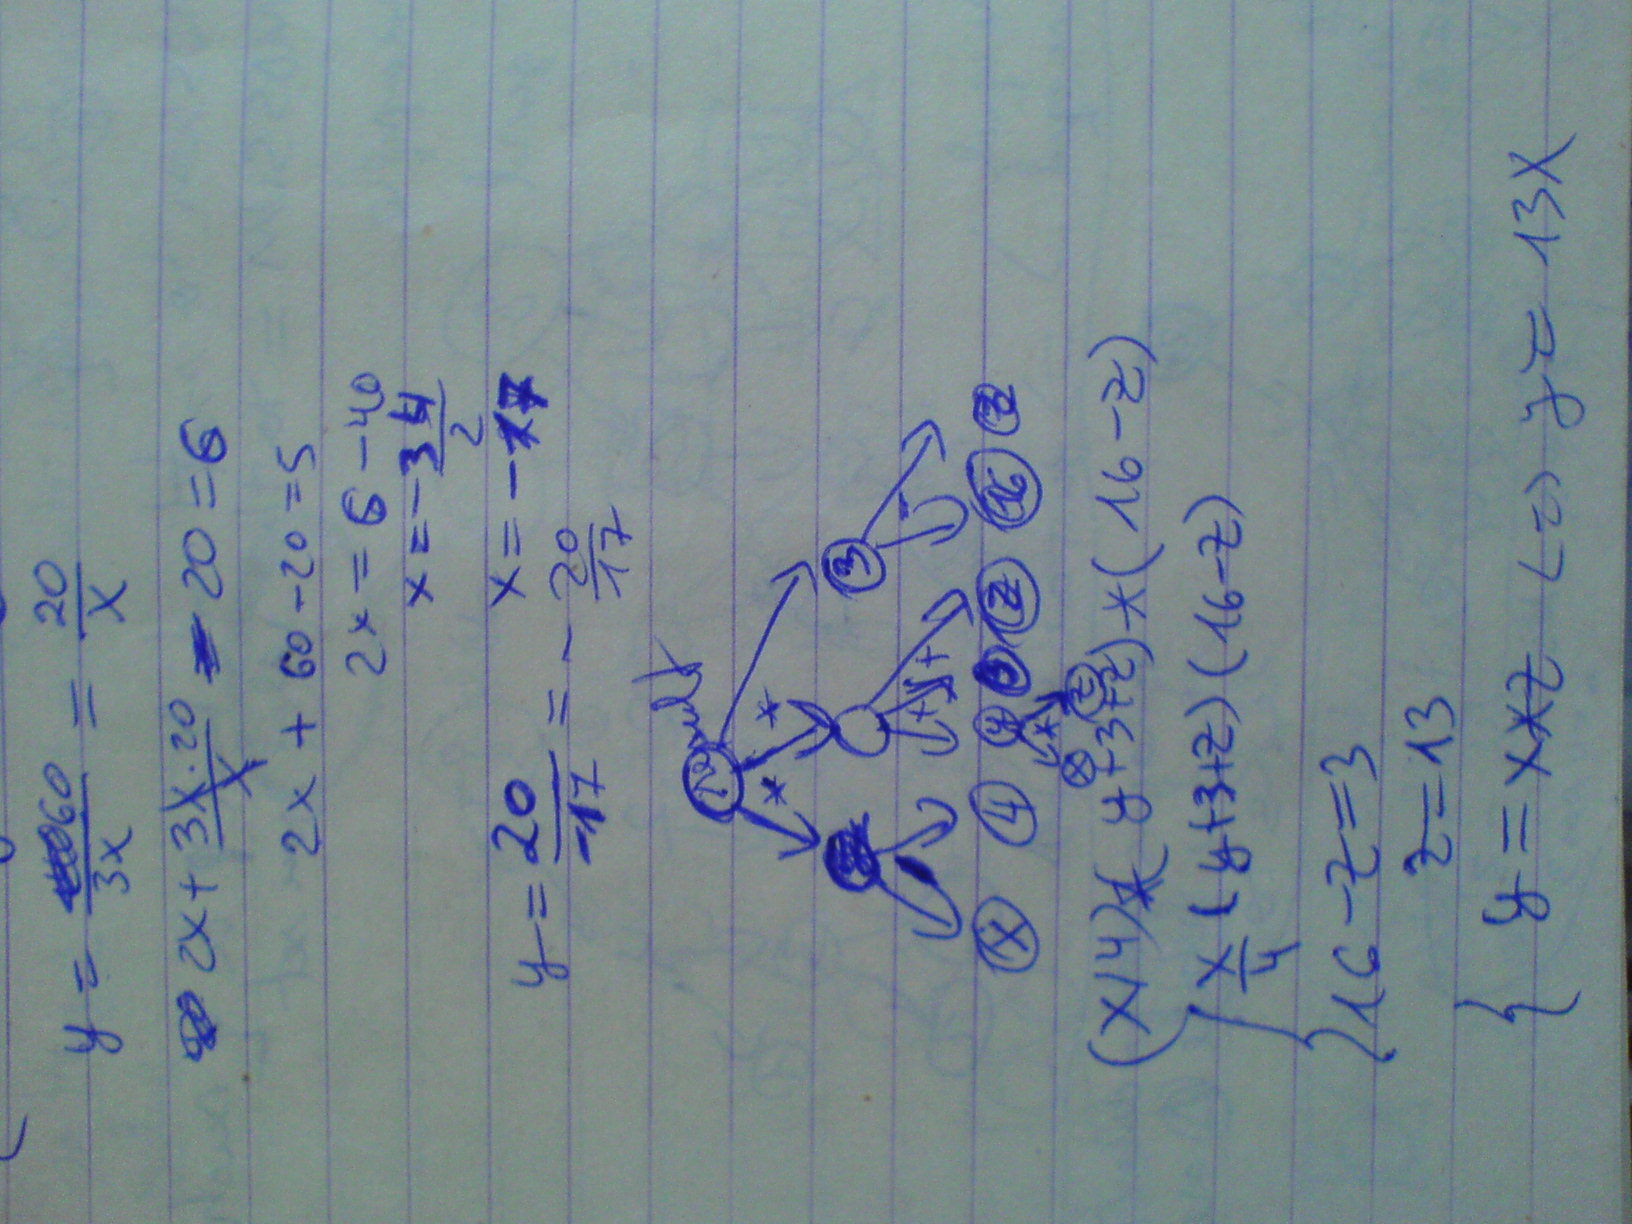 y = 60/3x = 20/x
2x + 3x·20/x - 20 = 6
2x + 60 - 20 = 5
2x = 6 - 40
x = -34/2
x = -17
y = 20/-17 = -20/17
* *
3
+ y + -
x 4 y z 16 z
* x z
(x/4)*(y+3+z)*(16-z)
{ x/4 (y+3+z)(16-z)
{ 16-z=3
z=13
{ y = x*z <=> y = 13x